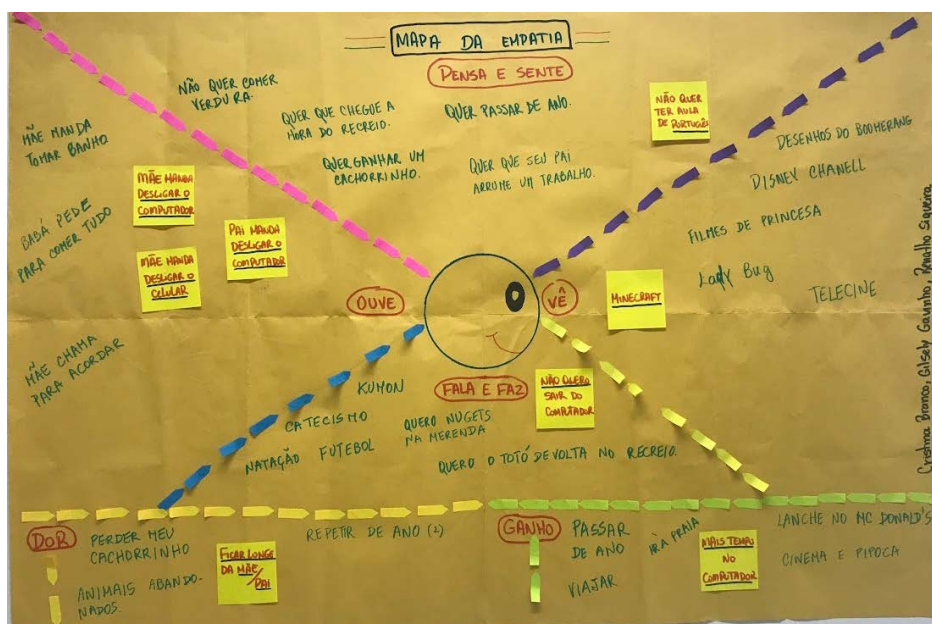 MAPA DA EMPATIA
PENSA E SENTE
NÃO QUER COMER
VERDURA.
QUER QUE CHEGUE A
HORA DO RECREIO.
QUER GANHAR UM
CACHORRINHO.
QUER PASSAR DE ANO.
QUER QUE SEU PAI
ARRUME UM TRABALHO.
NÃO QUER
TER AULA
DE PORTUGUÊS
MÃE MANDA
TOMAR BANHO
MÃE MANDA
DESLIGAR O
COMPUTADOR
BABÁ PEDE
PARA COMER TUDO
PAI MANDA
DESLIGAR O
COMPUTADOR
MÃE MANDA
DESLIGAR O
CELULAR
MÃE CHAMA
PARA ACORDAR
OUVE
VÊ
DESENHOS DO BOOMERANG
DISNEY CHANELL
FILMES DE PRINCESA
LADY Bug
TELECINE
MINECRAFT
FALA E FAZ
KUMON
CATECISMO
NATAÇÃO FUTEBOL
QUERO NUGETS
NA MERENDA
NÃO QUERO
SAIR DO
COMPUTADOR
QUERO O TOTÓ DE VOLTA NO RECREIO.
DOR
PERDER MEU
CACHORRINHO
ANIMAIS ABANDO-
NADOS.
FICAR LONGE
DA MÃE/
PAI
REPETIR DE ANO (2)
GANHO
PASSAR
DE ANO
VIAJAR
IR À PRAIA
MAIS TEMPO
NO
COMPUTADOR
LANCHE NO MC DONALD'S
CINEMA E PIPOCA
Cristina Branco, Gilsely Gavinho, Renatho Siqueira